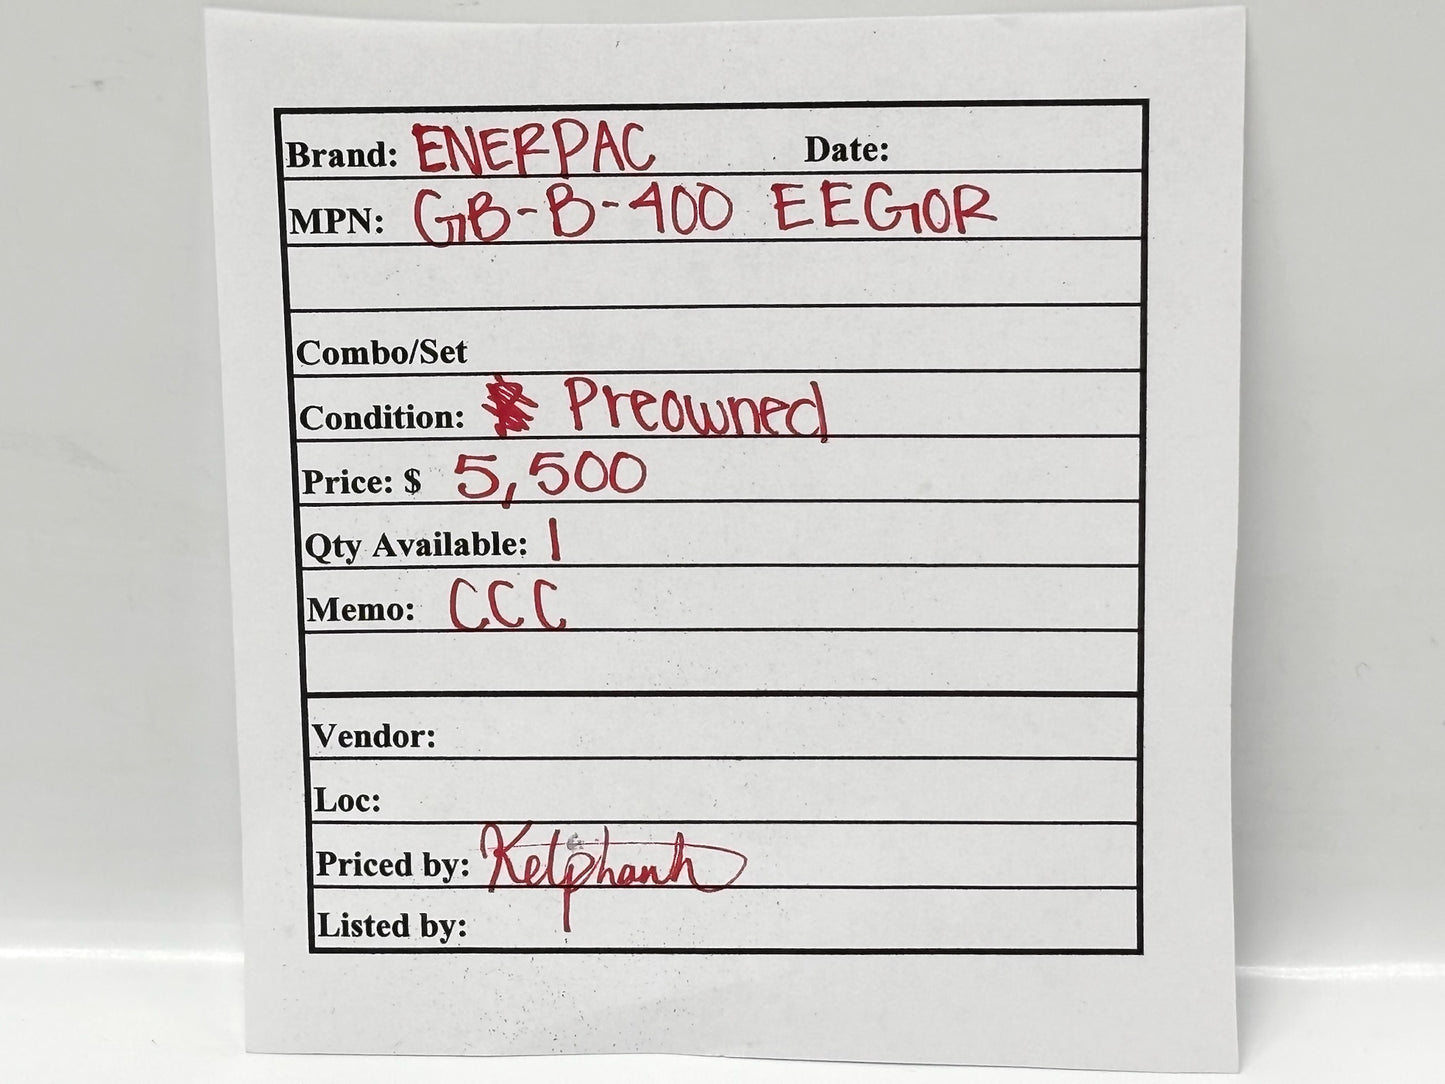 Brand: ENERPAC Date:
MPN: GB-B-400 EEGOR
Combo/Set
Condition: Preowned
Price: $ 5,500
Qty Available: 1
Memo: CCC
Vendor:
Loc:
Priced by:
Listed by: